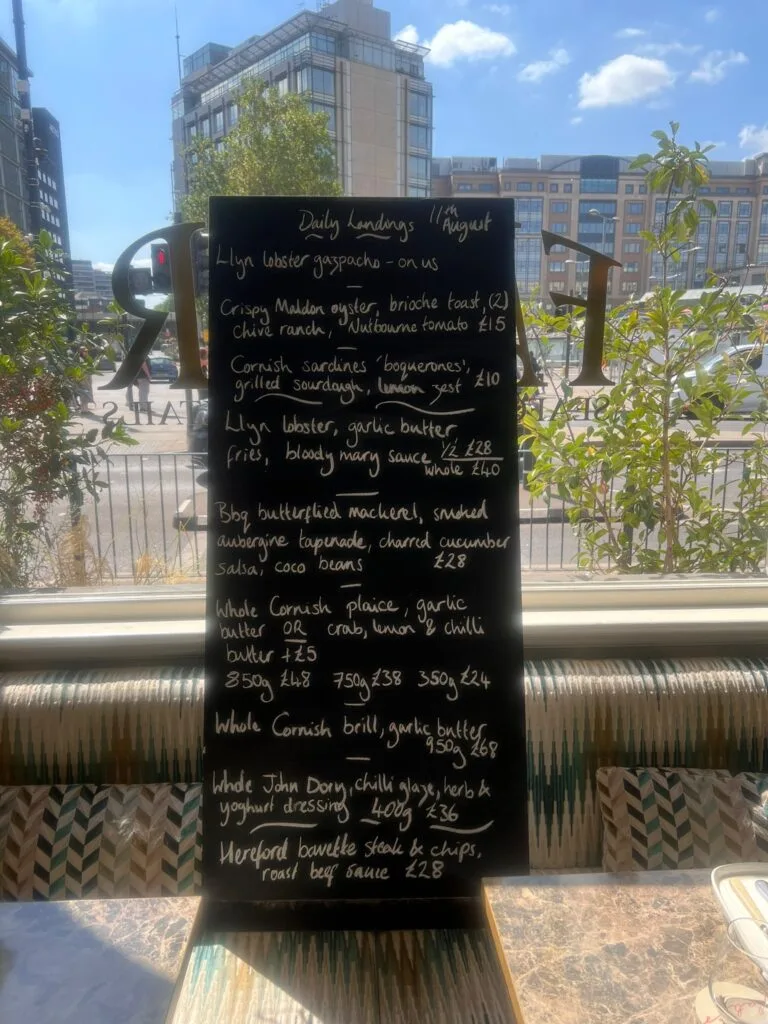 Daily Landings 11th August
Llyn lobster gazpacho - on us
Crispy Maldon oyster, brioche toast, (2)
chive ranch, Nutbourne tomato £15
Cornish sardines 'boquerones',
grilled sourdough, lemon zest £10
Llyn lobster, garlic butter
fries, bloody mary sauce 1/2 £28
whole £40
Bbq butterflied mackerel, smoked
aubergine tapenade, charred cucumber
salsa, coco beans £28
Whole Cornish plaice, garlic
butter OR crab, lemon & chilli
butter +£5
850g £48 750g £38 350g £24
Whole Cornish brill, garlic butter
950g £68
Whole John Dory, chilli glaze, herb &
yoghurt dressing 400g £36
Hereford bavette steak & chips,
roast beef sauce £28